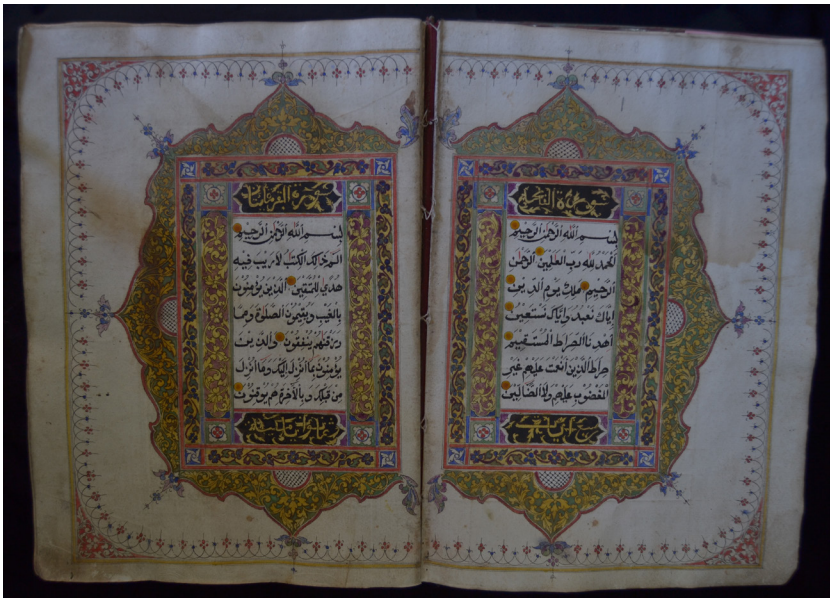 سورة الفاتحة
بِسْمِ اللهِ الرَّحْمٰنِ الرَّحِيْمِ
اَلْحَمْدُ لِلّٰهِ رَبِّ الْعٰلَمِيْنَ الرَّحْمٰنِ
الرَّحِيْمِ مٰلِكِ يَوْمِ الدِّيْنِ
اِيَّاكَ نَعْبُدُ وَاِيَّاكَ نَسْتَعِيْنُ
اِهْدِنَا الصِّرَاطَ الْمُسْتَقِيْمَ
صِرَاطَ الَّذِيْنَ اَنْعَمْتَ عَلَيْهِمْ غَيْرِ
الْمَغْضُوْبِ عَلَيْهِمْ وَلَا الضَّالِّيْنَ
سورة
بِسْمِ اللهِ الرَّحْمٰنِ الرَّحِيْمِ
الٓمٓ ذٰلِكَ الْكِتٰبُ لَا رَيْبَ فِيْهِ
هُدًى لِلْمُتَّقِيْنَ الَّذِيْنَ يُؤْمِنُوْنَ
بِالْغَيْبِ وَيُقِيْمُوْنَ الصَّلٰوةَ وَمِمَّا
رَزَقْنٰهُمْ يُنْفِقُوْنَ وَالَّذِيْنَ
يُؤْمِنُوْنَ بِمَا اُنْزِلَ اِلَيْكَ وَمَا اُنْزِلَ
مِنْ قَبْلِكَ وَبِالْاٰخِرَةِ هُمْ يُوْقِنُوْنَ